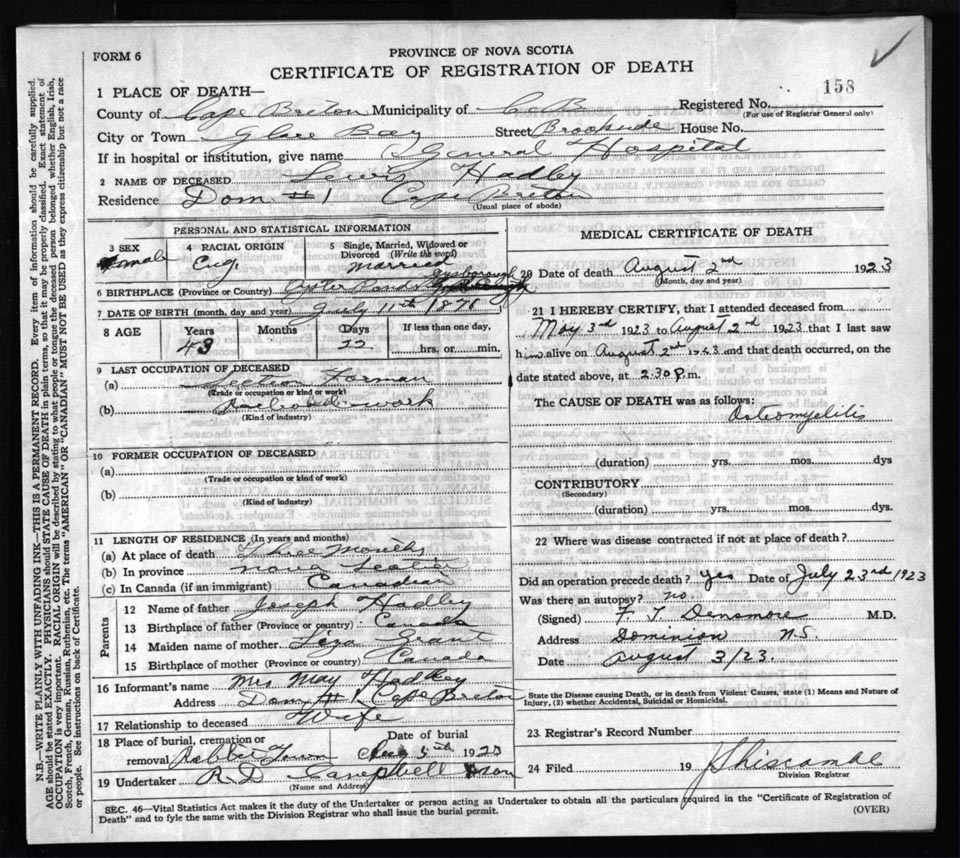 FORM 6
PROVINCE OF NOVA SCOTIA
CERTIFICATE OF REGISTRATION OF DEATH
158
1 PLACE OF DEATH—
County of Cape Breton Municipality of C B Registered No.
(For use of Registrar General only)
City or Town Glace Bay Street Brookside House No.
If in hospital or institution, give name General Hospital
2 NAME OF DECEASED Lewis Hadley
Residence Dom #1 Cape Breton
(Usual place of abode)
PERSONAL AND STATISTICAL INFORMATION
3 SEX 4 RACIAL ORIGIN 5 Single, Married, Widowed or Divorced (Write the word)
male Eng. married
6 BIRTHPLACE (Province or Country) Guysborough
7 DATE OF BIRTH (month, day and year) July 11th 1871
8 AGE Years Months Days If less than one day,
43 22 hrs. or min.
9 LAST OCCUPATION OF DECEASED
(a) Forman
(Trade or occupation or kind or work)
(b) work
(Kind of industry)
10 FORMER OCCUPATION OF DECEASED
(a)
(Trade or occupation or kind of work)
(b)
(Kind of industry)
11 LENGTH OF RESIDENCE (In years and months)
(a) At place of death Three months
(b) In province nova Scotia
(c) In Canada (if an immigrant) Canadian
Parents
12 Name of father Joseph Hadley
13 Birthplace of father (Province or country) Canada
14 Maiden name of mother Liza Grant
15 Birthplace of mother (Province or country) Canada
16 Informant's name Mrs May Hadley
Address Dom #1 Cape Breton
17 Relationship to deceased Wife
18 Place of burial, cremation or Date of burial
removal Town Aug 5th 1923
19 Undertaker R. D. Campbell & son
(Name and Address)
MEDICAL CERTIFICATE OF DEATH
20 Date of death August 2nd 1923
(Month, day and year)
21 I HEREBY CERTIFY, that I attended deceased from
May 3rd 1923 to August 2nd 1923 that I last saw
him alive on August 2nd 1923 and that death occurred, on the
date stated above, at 2.30 p.m.
The CAUSE OF DEATH was as follows:
Osteomyelitis
(duration) yrs. mos. dys
CONTRIBUTORY
(Secondary)
(duration) yrs. mos. dys.
22 Where was disease contracted if not at place of death?
Did an operation precede death? yes Date of July 23rd 1923
Was there an autopsy? no.
(Signed) F. T. Densmore M.D.
Address Dominion N.S.
Date August 3/23.
State the Disease causing Death, or in death from Violent Causes, state (1) Means and Nature of
Injury, (2) whether Accidental, Suicidal or Homicidal.
23 Registrar's Record Number
24 Filed 19
Division Registrar
SEC. 46—Vital Statistics Act makes it the duty of the Undertaker or person acting as Undertaker to obtain all the particulars required in the "Certificate of Registration of
Death" and to fyle the same with the Division Registrar who shall issue the burial permit.
(OVER)
N.B.—WRITE PLAINLY WITH UNFADING INK—THIS IS A PERMANENT RECORD. Every item of information should be carefully supplied.
AGE should be stated EXACTLY. PHYSICIANS should STATE CAUSE OF DEATH in plain terms, so that it may be properly classified. Exact statement of
OCCUPATION is very important. RACIAL ORIGIN will be described by stating to what people or tongue the deceased person belonged whether English, Irish,
Scotch, French, German, Russian, Ruthenian, etc. The terms "AMERICAN" OR "CANADIAN" MUST NOT BE USED as they express citizenship but not a race
or people. See instructions on back of Certificate.